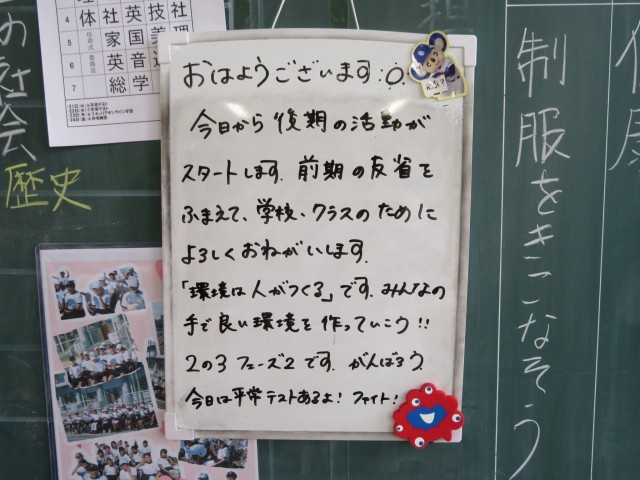 おはようございます:0.
今日から後期の活動が
スタートします. 前期の反省を
ふまえて, 学校・クラスのために
よろしくおねがいします.
「環境は人がつくる」です. みんなの
手で良い環境を作っていこう!!
2の3 フェーズ2です. がんばろう
今日は平常テストあるよ! ファイト!
体 社 英 技 社
5 家 国 美 理
6 英 音
7 総 学
の社会
歴史
制服をきこなそう